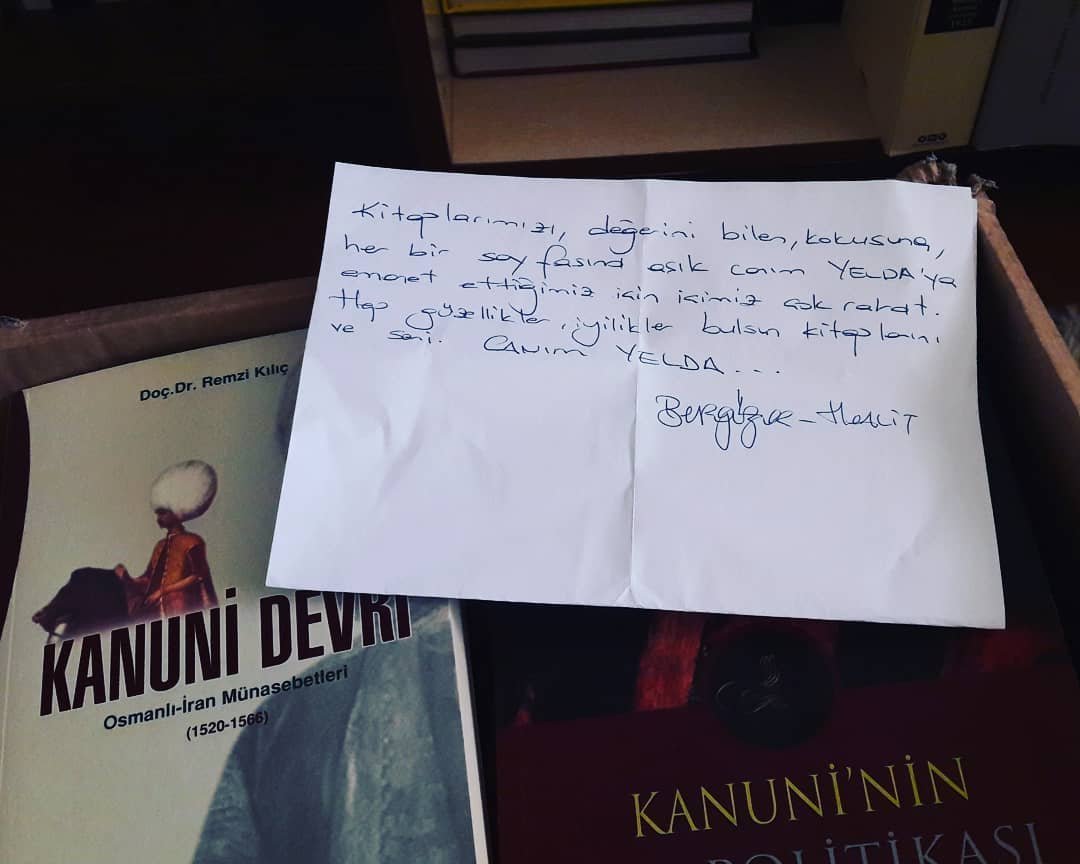 Kitaplarımızı, değerini bilen, kokusuna,
her bir sayfasına aşık canım YELDA'ya
emanet ettiğimiz için içimiz çok rahat.
Hep güzellikler, iyilikler bulsun kitaplarını
ve seni. CANIM YELDA...
BERGÜZAR - HALİT
Doç.Dr. Remzi Kılıç
KANUNİ DEVRİ
Osmanlı-İran Münasebetleri
(1520-1566)
KANUNİ'NİN
POLİTİKASI